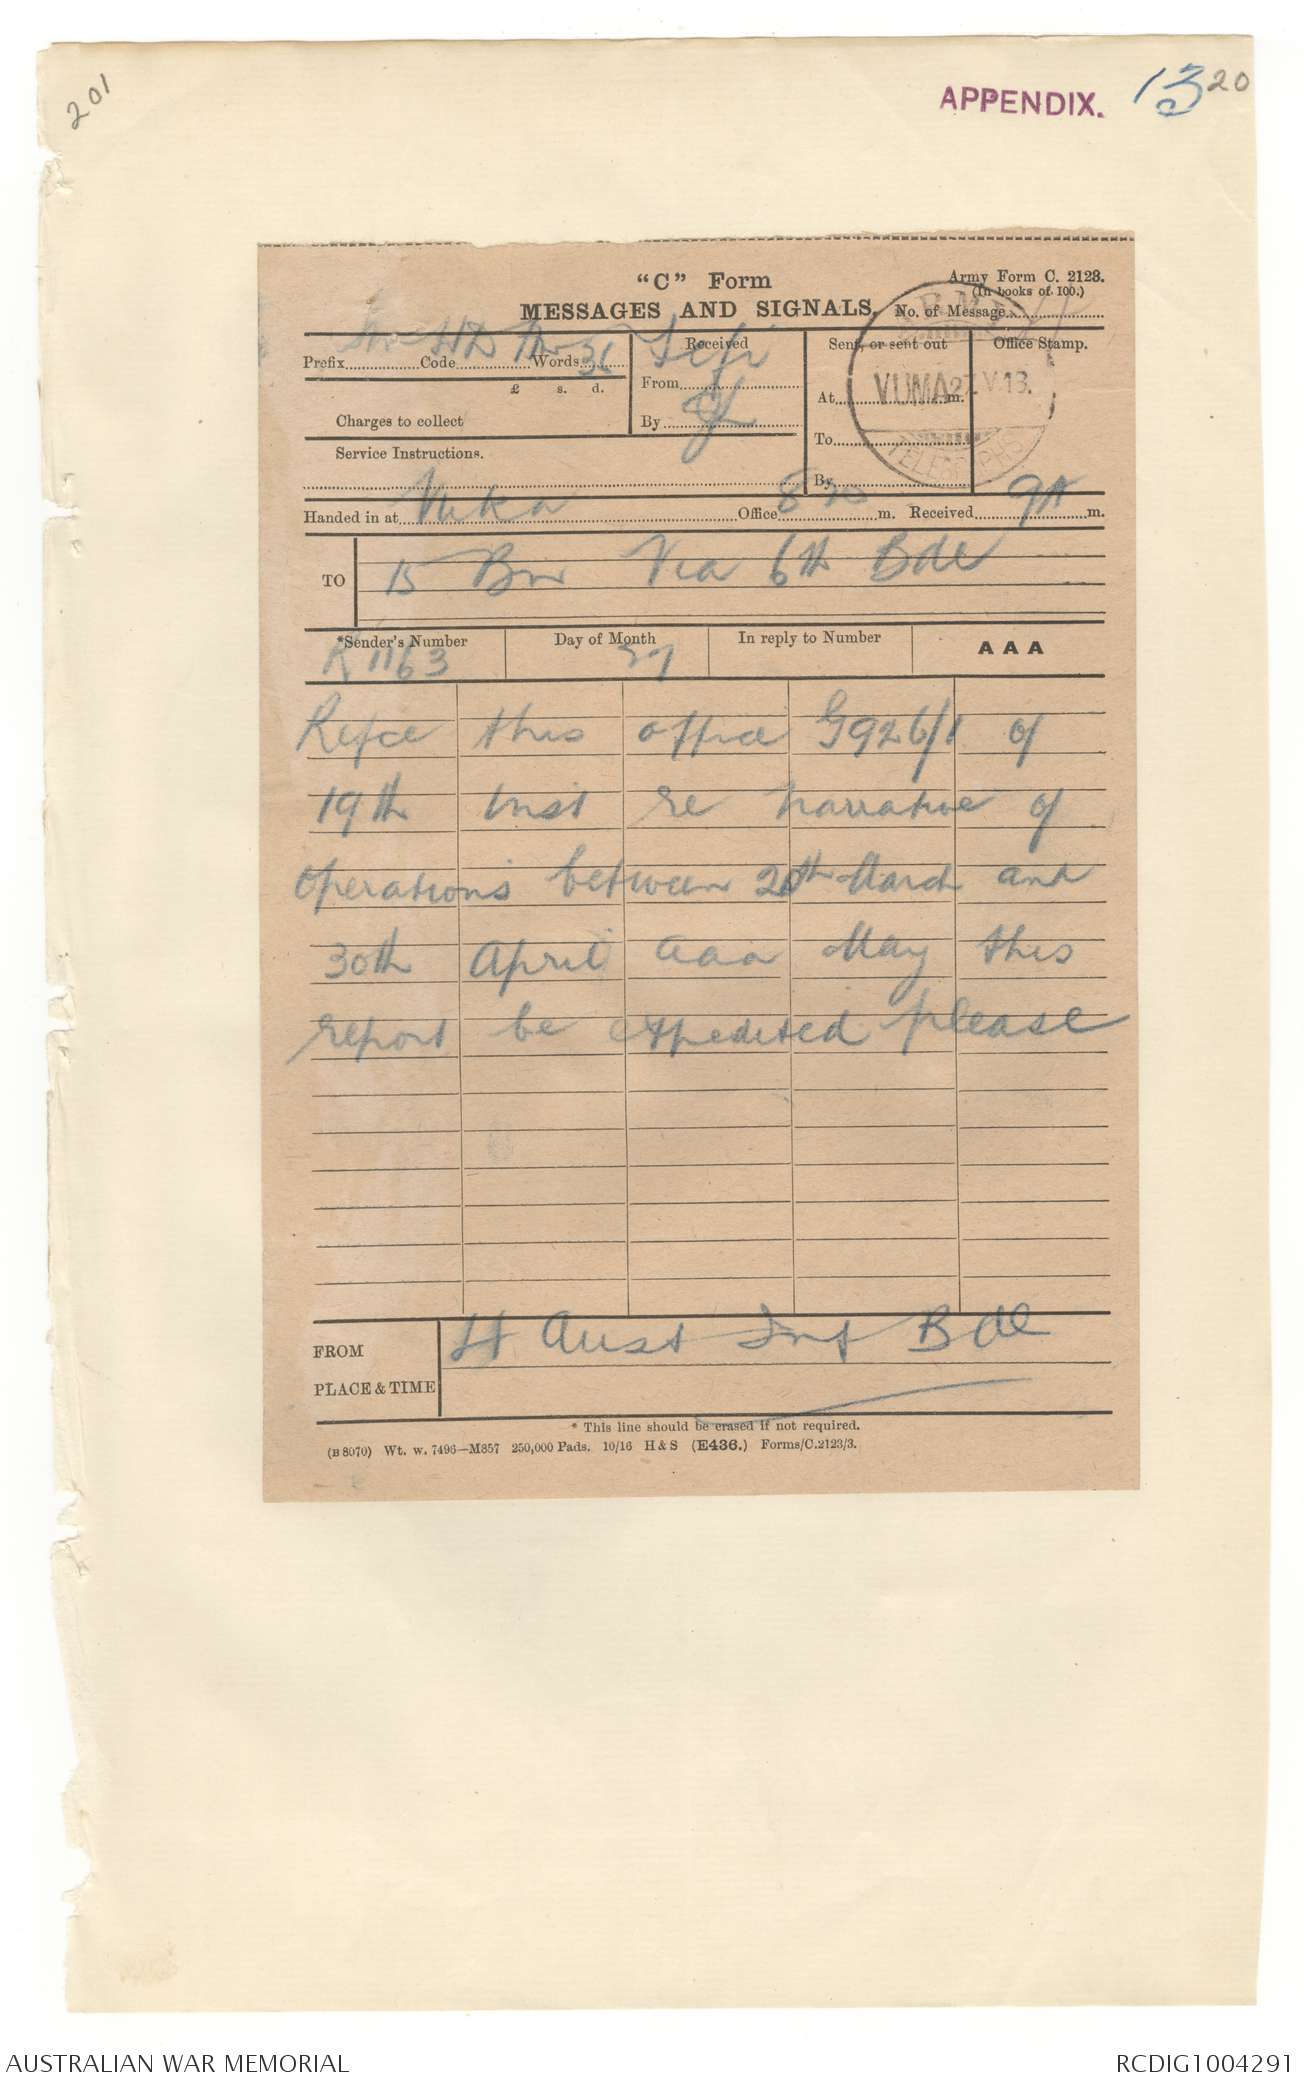 201
APPENDIX. 13 20
"C" Form
Army Form C. 2123.
(In books of 100.)
MESSAGES AND SIGNALS.
No. of Message
Prefix Code Words 36
£ s. d.
Charges to collect
Service Instructions.
Received
From
By
Sent, or sent out
At m.
To
By
Office Stamp.
ARMY
VUMA 27.V.18.
TELEGRAPHS
Handed in at Office 8 20 m. Received 9A m.
TO
15 Bn Via 6th Bde
*Sender's Number
K 1163
Day of Month
27
In reply to Number
AAA
Refce this office G926/1 of
19th Inst re narrative of
operations between 20th March and
30th April aaa May this
report be expedited please
FROM 4 Aust Inf Bde
PLACE & TIME
* This line should be erased if not required.
(B 8070) Wt. w. 7496—M857 250,000 Pads. 10/16 H & S (E436.) Forms/C.2123/3.
AUSTRALIAN WAR MEMORIAL
RCDIG1004291